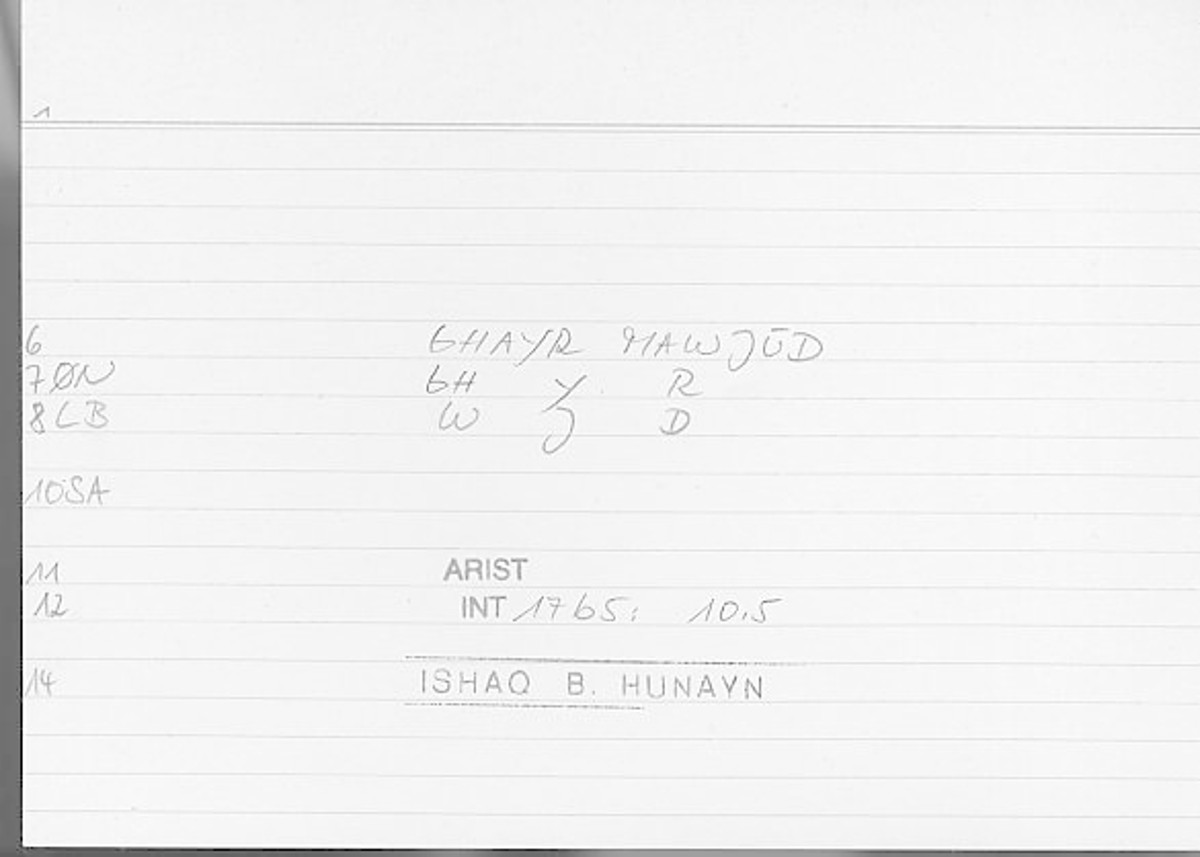 1
6 GHAYR MAWJŪD
7 ØN GH Y R
8 LB W J D
10 SA
11 ARIST
12 INT 1765: 10.5
14 ISHAQ B. HUNAYN